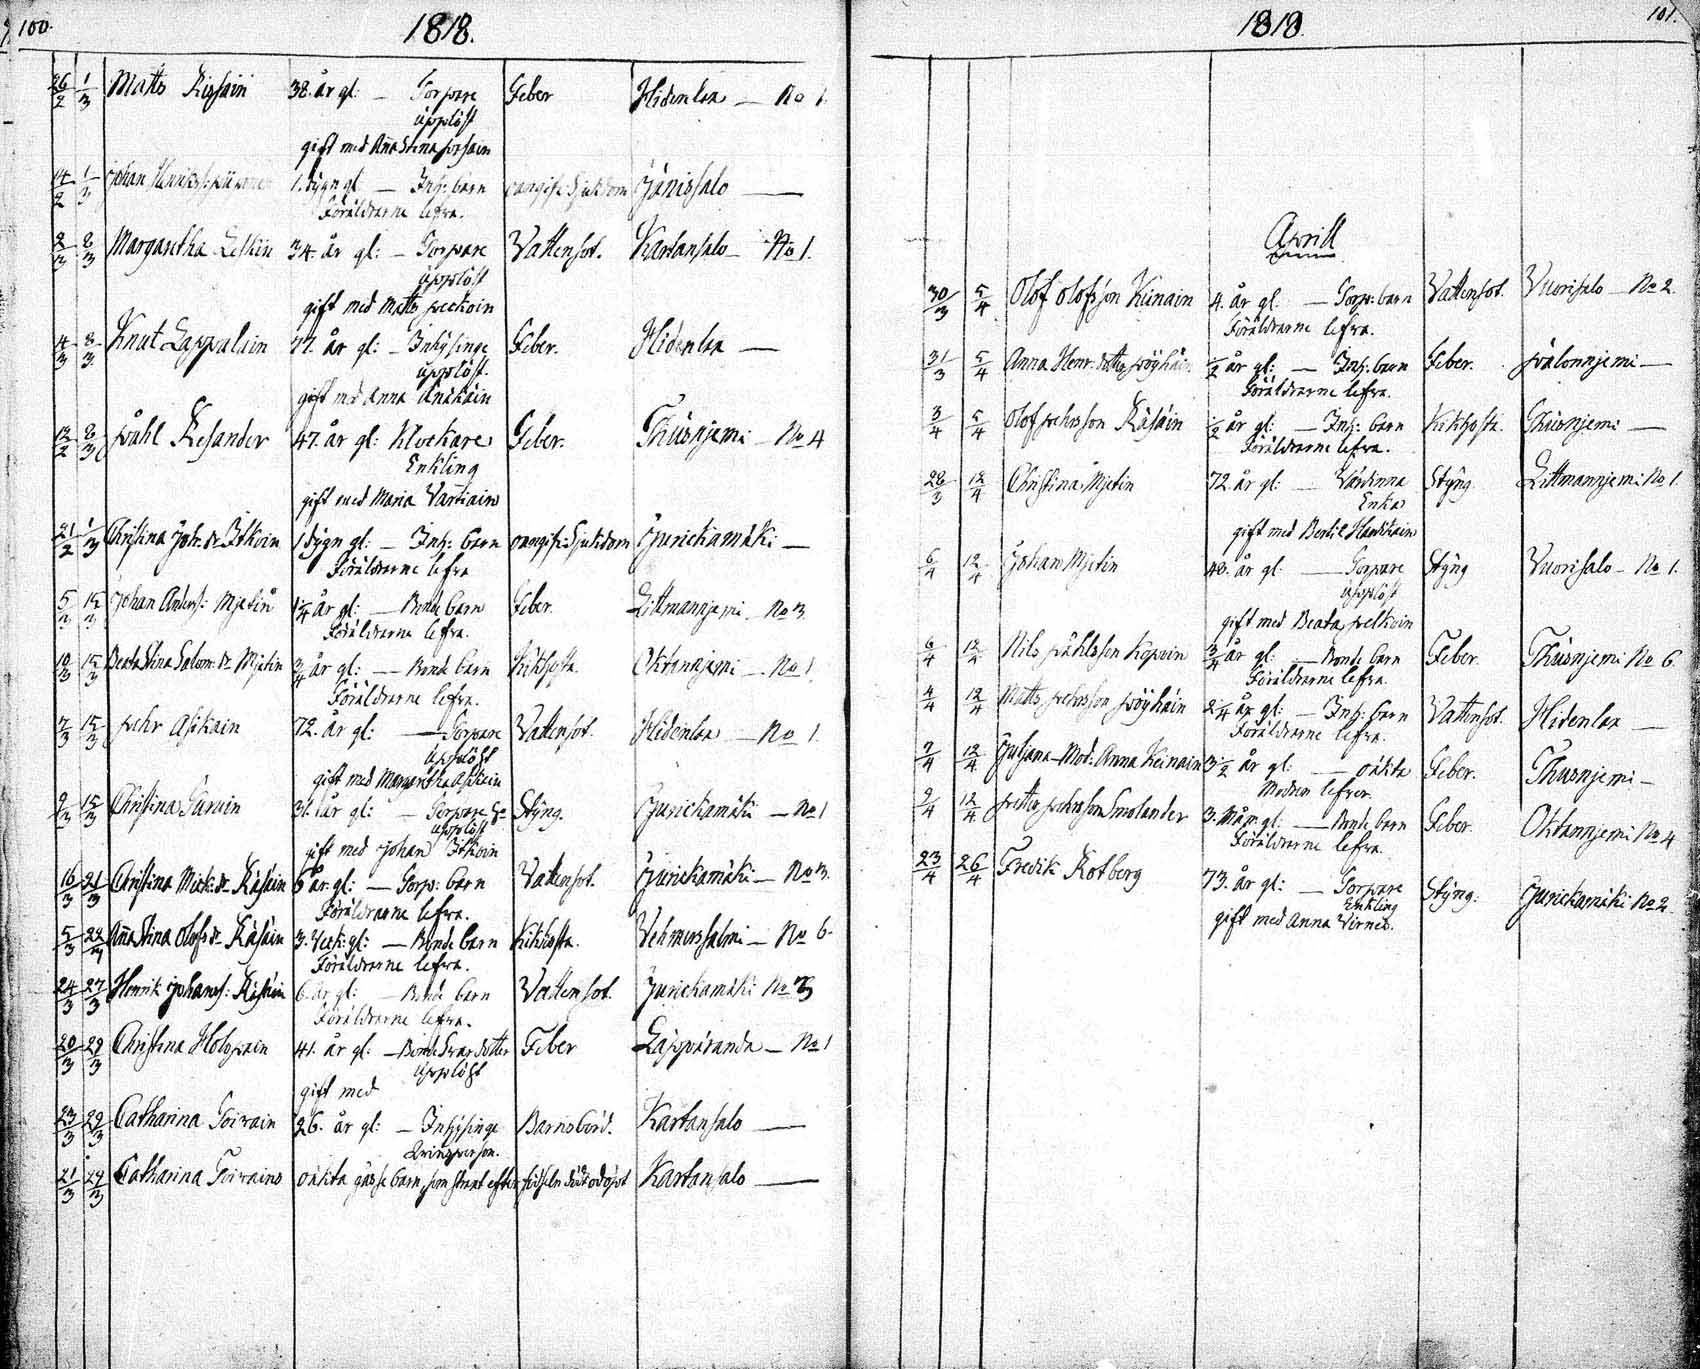 100.
1818.
26/2 1/3 Matts 38. år gl: — Torpare Feber Hidenlax — No 1.
upplöst
gift med Anna Stina
14/2 1/3 Johan 1. dygn gl. — Inh: barn oangifn: Sjukdom Jänissalo —
Föräldrarne lefva.
2/3 8/3 Margaretha Leskin 34. år gl: — Torpare Vattensot. Kartansalo — No 1.
upplöst
gift med Matts Peckoin
4/3 8/3 Knut Lappalain 77. år gl: — Inhÿsinge Feber. Hidenlax —
upplöst.
gift med Anna
12/2 8/3 Påhl Resander 47. år gl: Klockare Feber. Thusnjemi — No 4
Enkling
gift med Maria Vartiain
21/2 1/3 Christina Joh: dr Itkoin 1 dygn gl: — Inh: barn oangifn: Sjukdom Jurickamäki —
Föräldrarne lefva
5/3 15/3 Johan Anders: Mjetin 1 1/4 år gl: — Bonde barn Feber. Littmannjemi — No 3.
Föräldrarne lefva.
10/3 15/3 Beata Stina Salom: dr Mjetin 3/4 år gl: — Bonde barn Kikhosta. Oktannjemi — No 1
Föräldrarne lefva.
7/3 15/3 Pehr Asikain 72. år gl: — Torpare Vattensot. Hidenlax — No 1.
upplöst
gift med Margaretha Asikain
9/3 15/3 Christina 31. år gl: — Torpare Stÿng. Jurickamäki — No 1
upplöst
gift med Johan Itkoin
16/3 21/3 Christina Mick: dr Räsäin 6 år. gl: — Torp: barn Vattensot. Jurickamäki — No 3.
Föräldrarne lefva.
5/3 22/3 Anna Stina Olofs dr Räsäin 3. Veck: gl: — Bonde barn Kikhosta. Vehmersalmi — No 6.
Föräldrarne lefva.
24/3 27/3 Henrik Johans: Räsäin 6. år gl: — Bonde barn Vattensot. Jurickamäki No 3
Föräldrarne lefva.
20/3 29/3 Christina Holopain 41. år gl: — Bonde Feber Läppäranda — No 1
upplöst
gift med
23/3 29/3 Catharina Toivain 26. år gl: — Inhÿsinge Barnsbörd. Kartansalo —
Qvinsperson.
21/3 29/3 Catharina Toivains oäkta gosse barn, som strax efter födseln dödt odöpt Kartansalo —
101.
1818.
Aprill
30/3 5/4 Olof Olofsson Keinain 4. år gl. — Torp: barn Vattensot. Vuorisalo — No 2.
Föräldrarne lefva.
31/3 5/4 Anna Henr: dotter Pöyhäin 1/2 år gl: — Inh: barn Feber. Pälonnjemi —
Föräldrarne lefva.
3/4 5/4 Olof Pehrsson Räsäin 1/2 år gl: — Inh: barn Kikhosta. Thusnjemi —
Föräldrarne lefva.
28/3 12/4 Christina Mjetin 72. år gl: — Värdinna Stÿng. Littmannjemi No 1.
Enka
gift med Bertil
6/4 12/4 Johan Mjetin 48. år gl. — Torpare Stÿng Vuorisalo — No 1.
upplöst
gift med Beata
6/4 12/4 Nils Påhlsson Kopoin 3/4 år gl: — Bonde barn Feber. Thusnjemi No 6.
Föräldrarne lefva.
4/4 12/4 Matts Pehrsson Pöyhäin 2 1/4 år gl: — Inh: barn Vattensot. Hidenlax —
Föräldrarne lefva.
7/4 12/4 Juljana Mod: Anna Keinain 3 1/2 år gl: — oäkta Feber. Thusnjemi —
Modren lefver.
9/4 12/4 Petter Pehrsson Smolander 3. Mån: gl: — Bonde barn Feber. Oktannjemi No 4
Föräldrarne lefva.
23/4 26/4 Fredik Rotberg 73. år gl: — Torpare Stÿng: Jurickamäki No 2.
Enkling
gift med Anna